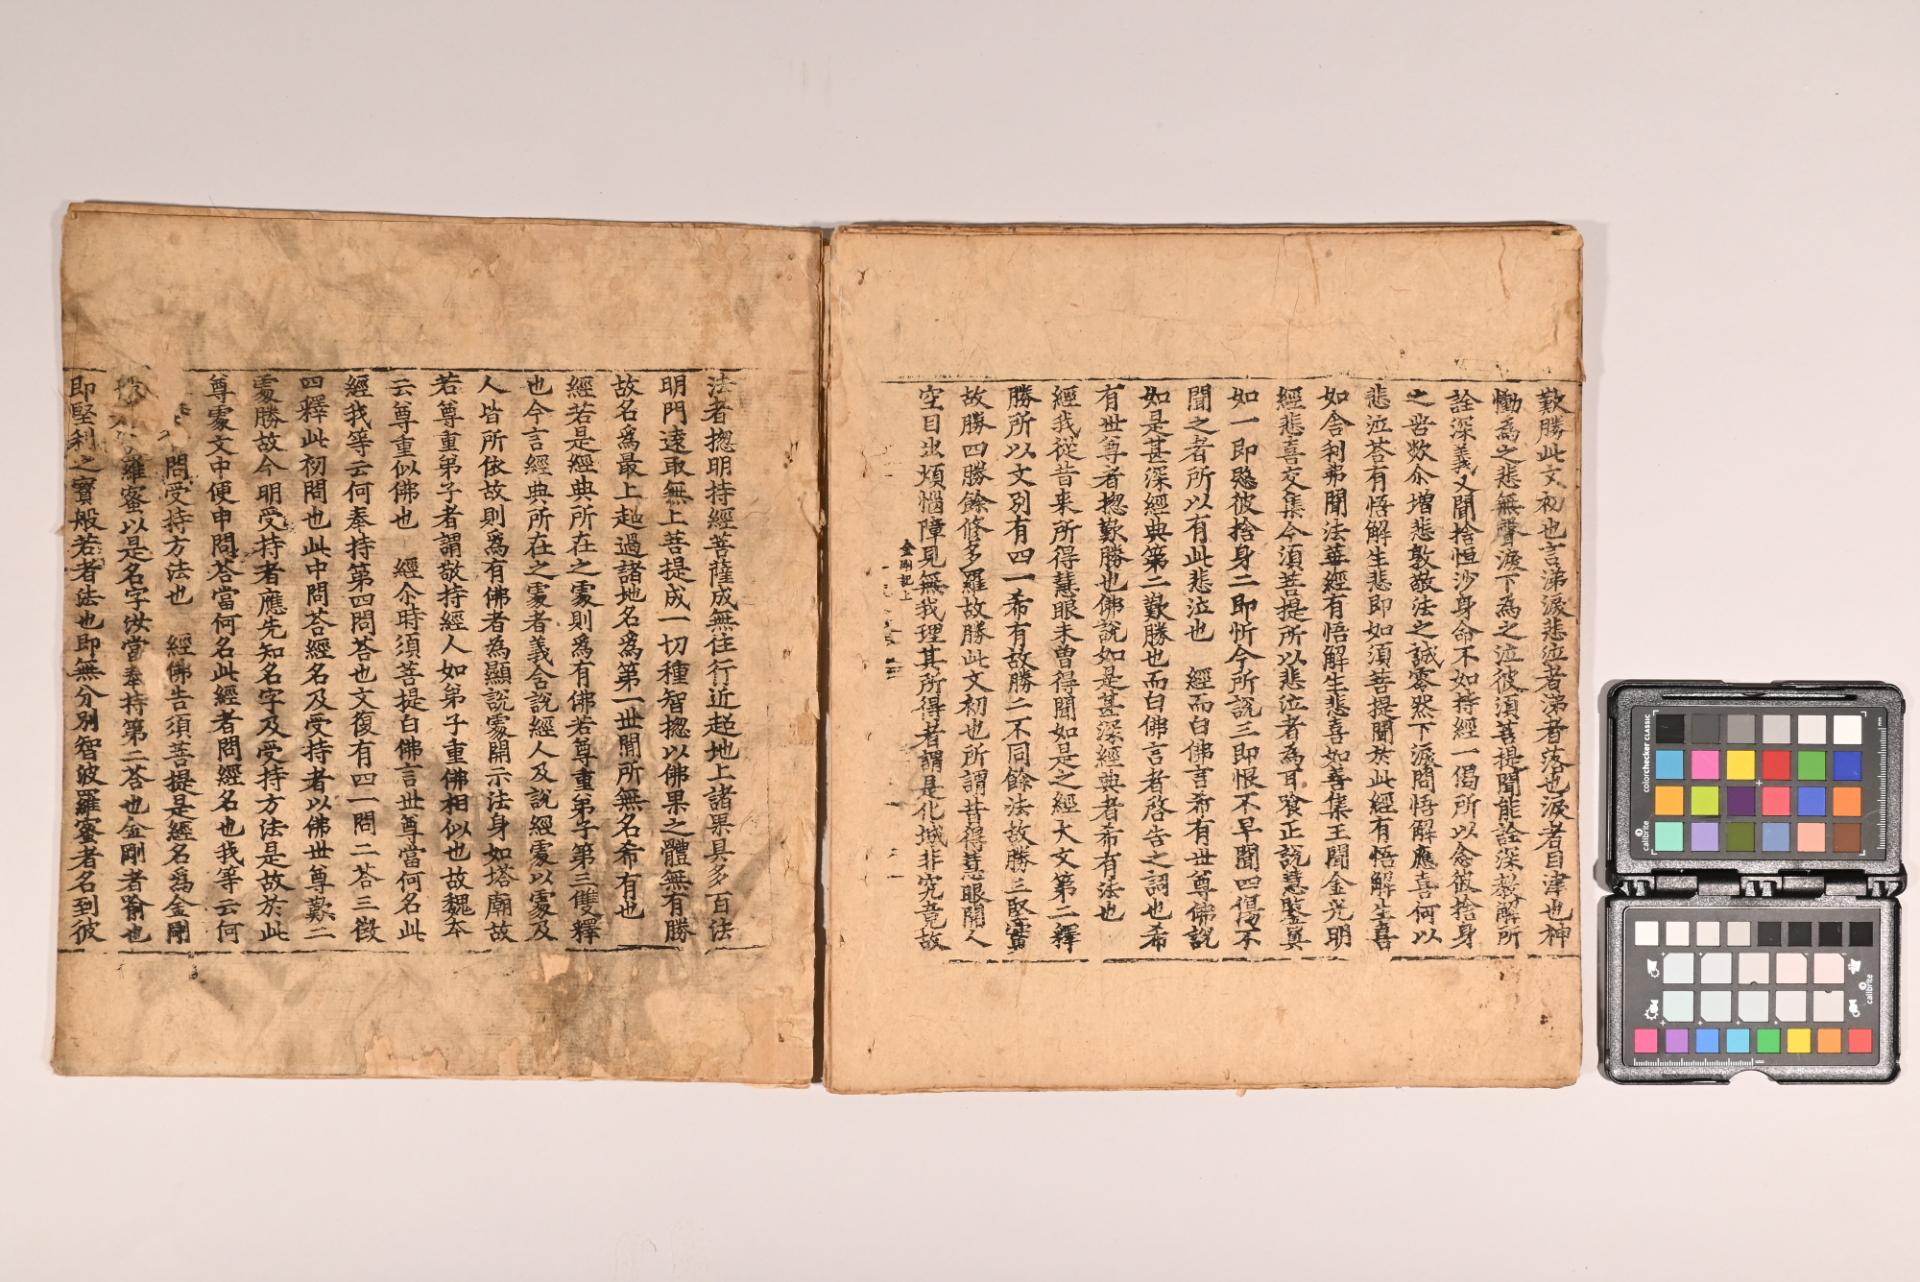 歎勝此文初也言涕淚悲泣者涕者落也淚者目津也神
慟為之悲無聲淚下為之泣彼須菩提聞能詮深慈解所
詮深義又聞捨恒沙身命不如持經一偈所以念彼捨身
之苦欻尒增悲敦敬法之誠零然下淚問悟解應喜何以
悲泣荅有悟解生悲即如須菩提聞於此經有悟解生喜
如舍利弗聞法華經有悟解生悲喜如善集王聞金光明
經悲喜交集今須菩提所以悲泣者為耳飡正說慧鑒真
如一即愍彼捨身二即忻今所說三即恨不早聞四傷不
聞之者所以有此悲泣也 經而白佛言希有世尊佛說
如是甚深經典第二歎勝也而白佛言者啓告之詞也希
有世尊者揔歎勝也佛說如是甚深經典者希有法也
經我從昔来所得慧眼未曾得聞如是之經大文第二釋
勝所以文別有四一希有故勝二不同餘法故勝三堅實
故勝四勝餘修多羅故勝此文初也所謂昔得慧眼開人
空目出煩惱障見無我理其所得者謂是化城非究竟故
金剛記上
法者揔明持經菩薩成無住行近起地上諸果具多百法
明門遠取無上菩提成一切種智揔以佛果之體無有勝
故名爲最上起過諸地名爲第一世間所無名希有也
經若是經典所在之䖏則爲有佛若尊重弟子第三雙釋
也今言經典所在之䖏者義含說經人及說經䖏以䖏及
人皆所依故則爲有佛者為顯說䖏開示法身如塔廟故
若尊重弟子者謂敬持經人如弟子重佛相似也故魏本
云尊重似佛也 經尒時須菩提白佛言世尊當何名此
經我等云何奉持第四問荅也文復有四一問二荅三徵
四釋此初問也此中問荅經名及受持者以佛世尊歎二
䖏勝故今明受持者應先知名字及受持方法是故於此
尊䖏文中便申問荅當何名此經者問經名也我等云何
問受持方法也 經佛告須菩提是經名爲金剛
羅蜜以是名字汝當奉持第二荅也金剛者喻也
即堅利之寶般若者法也即無分別智波羅蜜者名到彼